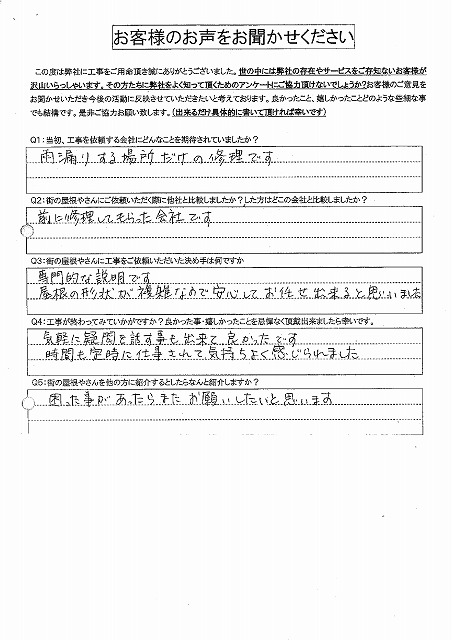 お客様のお声をお聞かせください
この度は弊社に工事をご用命頂き誠にありがとうございました。世の中には弊社の存在やサービスをご存知ないお客様が
沢山いらっしゃいます。その方たちに弊社をよく知って頂くためのアンケートにご協力頂けないでしょうか？お客様のご意見を
お聞かせいただき今後の活動に反映させていただきたいと考えております。良かったこと、嬉しかったことどのような些細な事
でも結構です。是非ご協力お願い致します。（出来るだけ具体的に書いて頂ければ幸いです）
Q1：当初、工事を依頼する会社にどんなことを期待されていましたか？
雨漏りする場所だけの修理です
Q2：街の屋根やさんにご依頼いただく際に他社と比較しましたか？した方はどこの会社と比較しましたか？
前に修理してもらった会社です
Q3：街の屋根やさんに工事をご依頼いただいた決め手は何ですか
専門的な説明です
屋根の形状が複雑なので安心してお任せ出来ると思いました
Q4：工事が終わってみていかがですか？良かった事・嬉しかったことを忌憚なく頂戴出来ましたら幸いです。
気軽に疑問を話す事も出来て良かったです
時間も定時に仕事されて気持ちよく感じられました
Q5：街の屋根やさんを他の方に紹介するとしたらなんと紹介しますか？
困った事があったらまたお願いしたいと思います